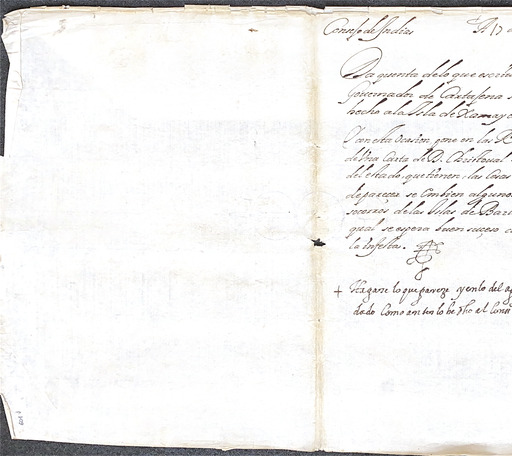 Consejo de Indias
A 17
Da quenta de lo que escriue
Gouernador de Cartagena
hecho a la Isla de Xamayca
Con esta ocasion, pone en las R
de Vra Carta de D. Christoual
del estado que tienen las Cosas
de parecer se embien algunos
socorros de las Islas de Barl
qual se espera buen suçeso
la Infesta.
+ Hagase lo que pareze, y en lo del
dado como